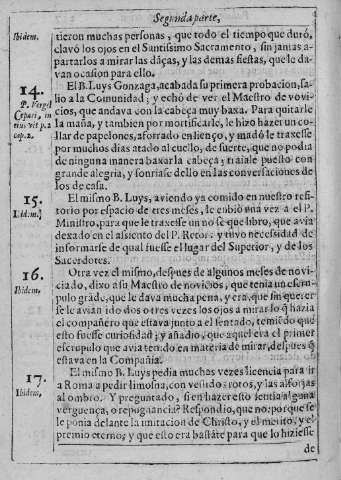 Segunda parte,
Ibidem.
tieron muchas personas, que todo el tiempo que duró,
clavó los ojos en el Santissimo Sacramento, sin jamas a-
partarlos a mirar las dãças, y las demas fiestas, que le da-
van ocasion para ello.
14.
P. Vergel
Cepari, in
eius vit p.2
cap.2.
El B. Luys Gonzaga, acabada su primera probacion, sa-
lio a la Comunidad; y echó de ver el Maestro de novi-
cios, que andava con la cabeça muy baxa. Para quitarle
la maña, y tambien por mortificarle, le hizo hazer un co-
llar de papelones, aforrado en lienço, y mãdó le traxesse
por muchos dias atado al cuello, de suerte, que no podia
de ninguna manera baxar la cabeça; traiale puesto con
grande alegria, y sonriase dello en las conversaciones de
los de casa.
15.
Ibidem.
El mismo B. Luys, aviendo ya comido en nuestro refi-
torio por espacio de tres meses, le enbió una vez a el P.
Ministro, para que le traxesse un no se que libro, que avia
dexado en el asiento del P. Retor; y tuvo necessidad de
informarse de qual fuesse el lugar del Superior, y de los
Sacerdotes.
16.
Ibidem.
Otra vez el mismo, despues de algunos meses de novi-
ciado, dixo a su Maestro de novicios, que tenia un escru-
pulo grãde, que le dava mucha pena, y era, que sin querer
se le avian ido dos o tres vezes los ojos a mirar lo q̃ hazia
el compañero que estava junto a el sentado, temiẽdo que
esto fuesse curiosidad; y añadio, que aquel era el primer
escrupulo que avia tenido en materia de mirar, despues q̃
estava en la Compañia.
17.
Ibidem.
El mismo B. Luys pedia muchas vezes licencia para ir
a Roma a pedir limosna, con vestidos rotos, y las alforjas
al ombro. Y preguntado, si en hazer esto sentia alguna
verguença, o repognancia? Respondio, que no: porque se
le ponia delante la imitacion de Christo, y el merito, y el
premio eterno; y que esto era bastãte para que lo hiziesse
de